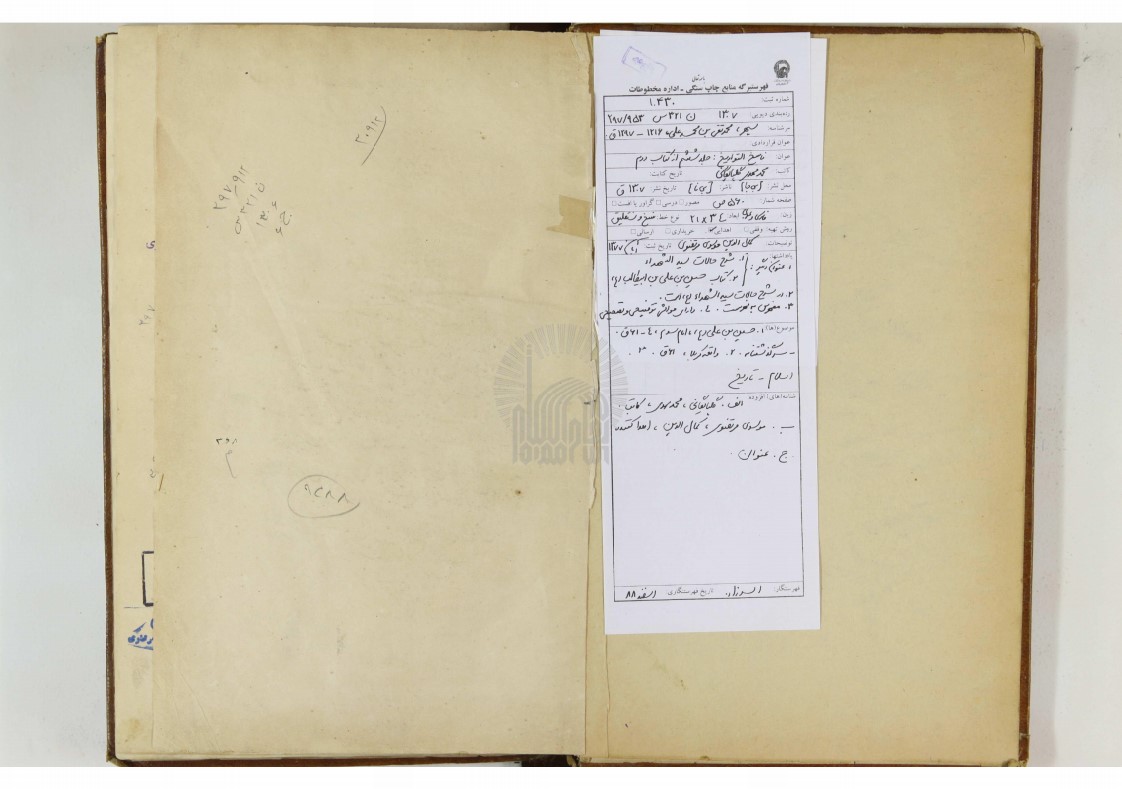 ۲۰۹۱۲
۲۹۷/۹۱۲
ن ۳۲۱ س
۱۳۰۶
ج ۶
۹۲۸۸
باسمه تعالی
فهرستبرگه منابع چاپ سنگی - اداره مخطوطات
شماره ثبت: ۱۰۴۳۰
رده‌بندی دیویی: ۲۹۷/۹۵۳ ن ۳۲۱ س ۱۳۰۷
سرشناسه: سپهر، محمدتقی بن محمدعلی، ۱۲۱۶ - ۱۲۹۷ ق.
عنوان قراردادی:
عنوان: ناسخ التواریخ: جلد ششم از کتاب دوم
کاتب: محمدمهدی گلپایگانی تاریخ کتابت:
محل نشر: [بی‌جا] ناشر: [بی‌نا] تاریخ نشر: ۱۳۰۷ ق
صفحه شمار: ۵۶۰ ص مصور □ درسی □ گراور یا افست □
زبان: فارسی ابعاد: ۲۱ x ۳۴ نوع خط: نسخ و نستعلیق
روش تهیه: وقفی □ اهدایی خریداری □ ارسالی □
توضیحات: کمال الدین موسوی مرتضوی تاریخ ثبت: آبان ۱۳۷۷
یادداشتها:
۱. عنوان دیگر: ۱. شرح حالات سید الشهداء
۲. کتاب حسین بن علی بن ابیطالب (ع)
۲. در شرح حالات سید الشهداء (ع) است.
۳. مخصوص به فهرست. ۴. دارای حواشی توضیحی و تصحیحی
موضوع(ها): ۱. حسین بن علی (ع)، امام سوم، ۴ - ۶۱ ق.
- سرگذشتنامه. ۲. واقعه کربلا، ۶۱ ق. ۳.
اسلام - تاریخ
شناسه(های) افزوده: الف. گلپایگانی، محمدمهدی، کاتب.
ب. موسوی مرتضوی، کمال الدین، اهدا کننده
ج. عنوان.
فهرستنگار: تاریخ فهرستنگاری: اسفند ۸۸